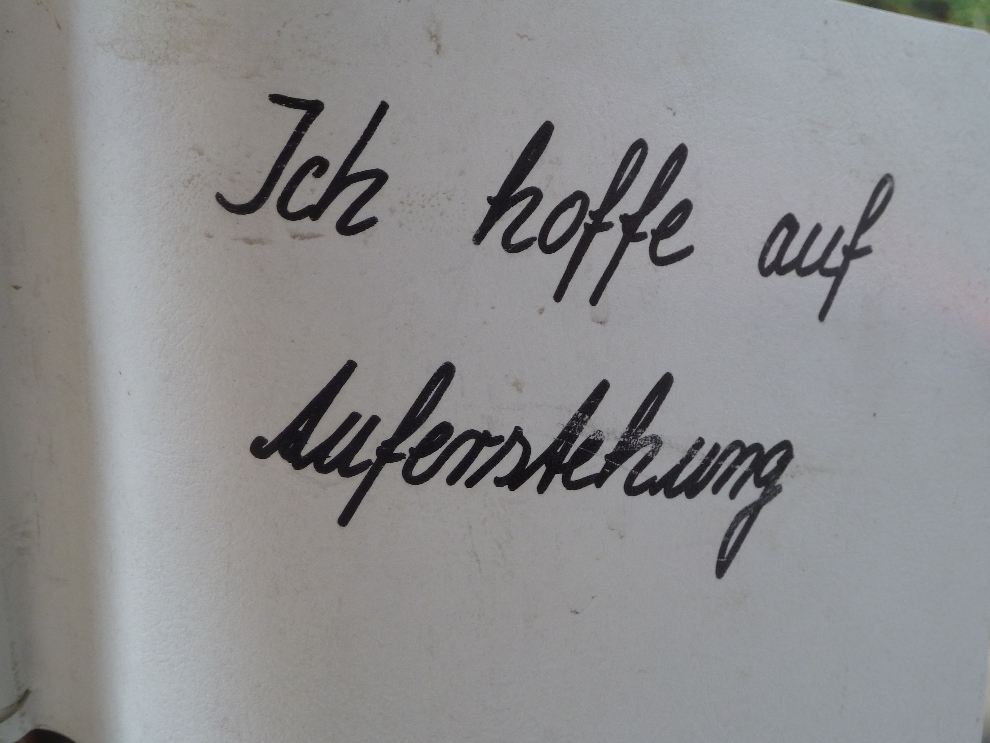 Ich hoffe auf
Auferstehung